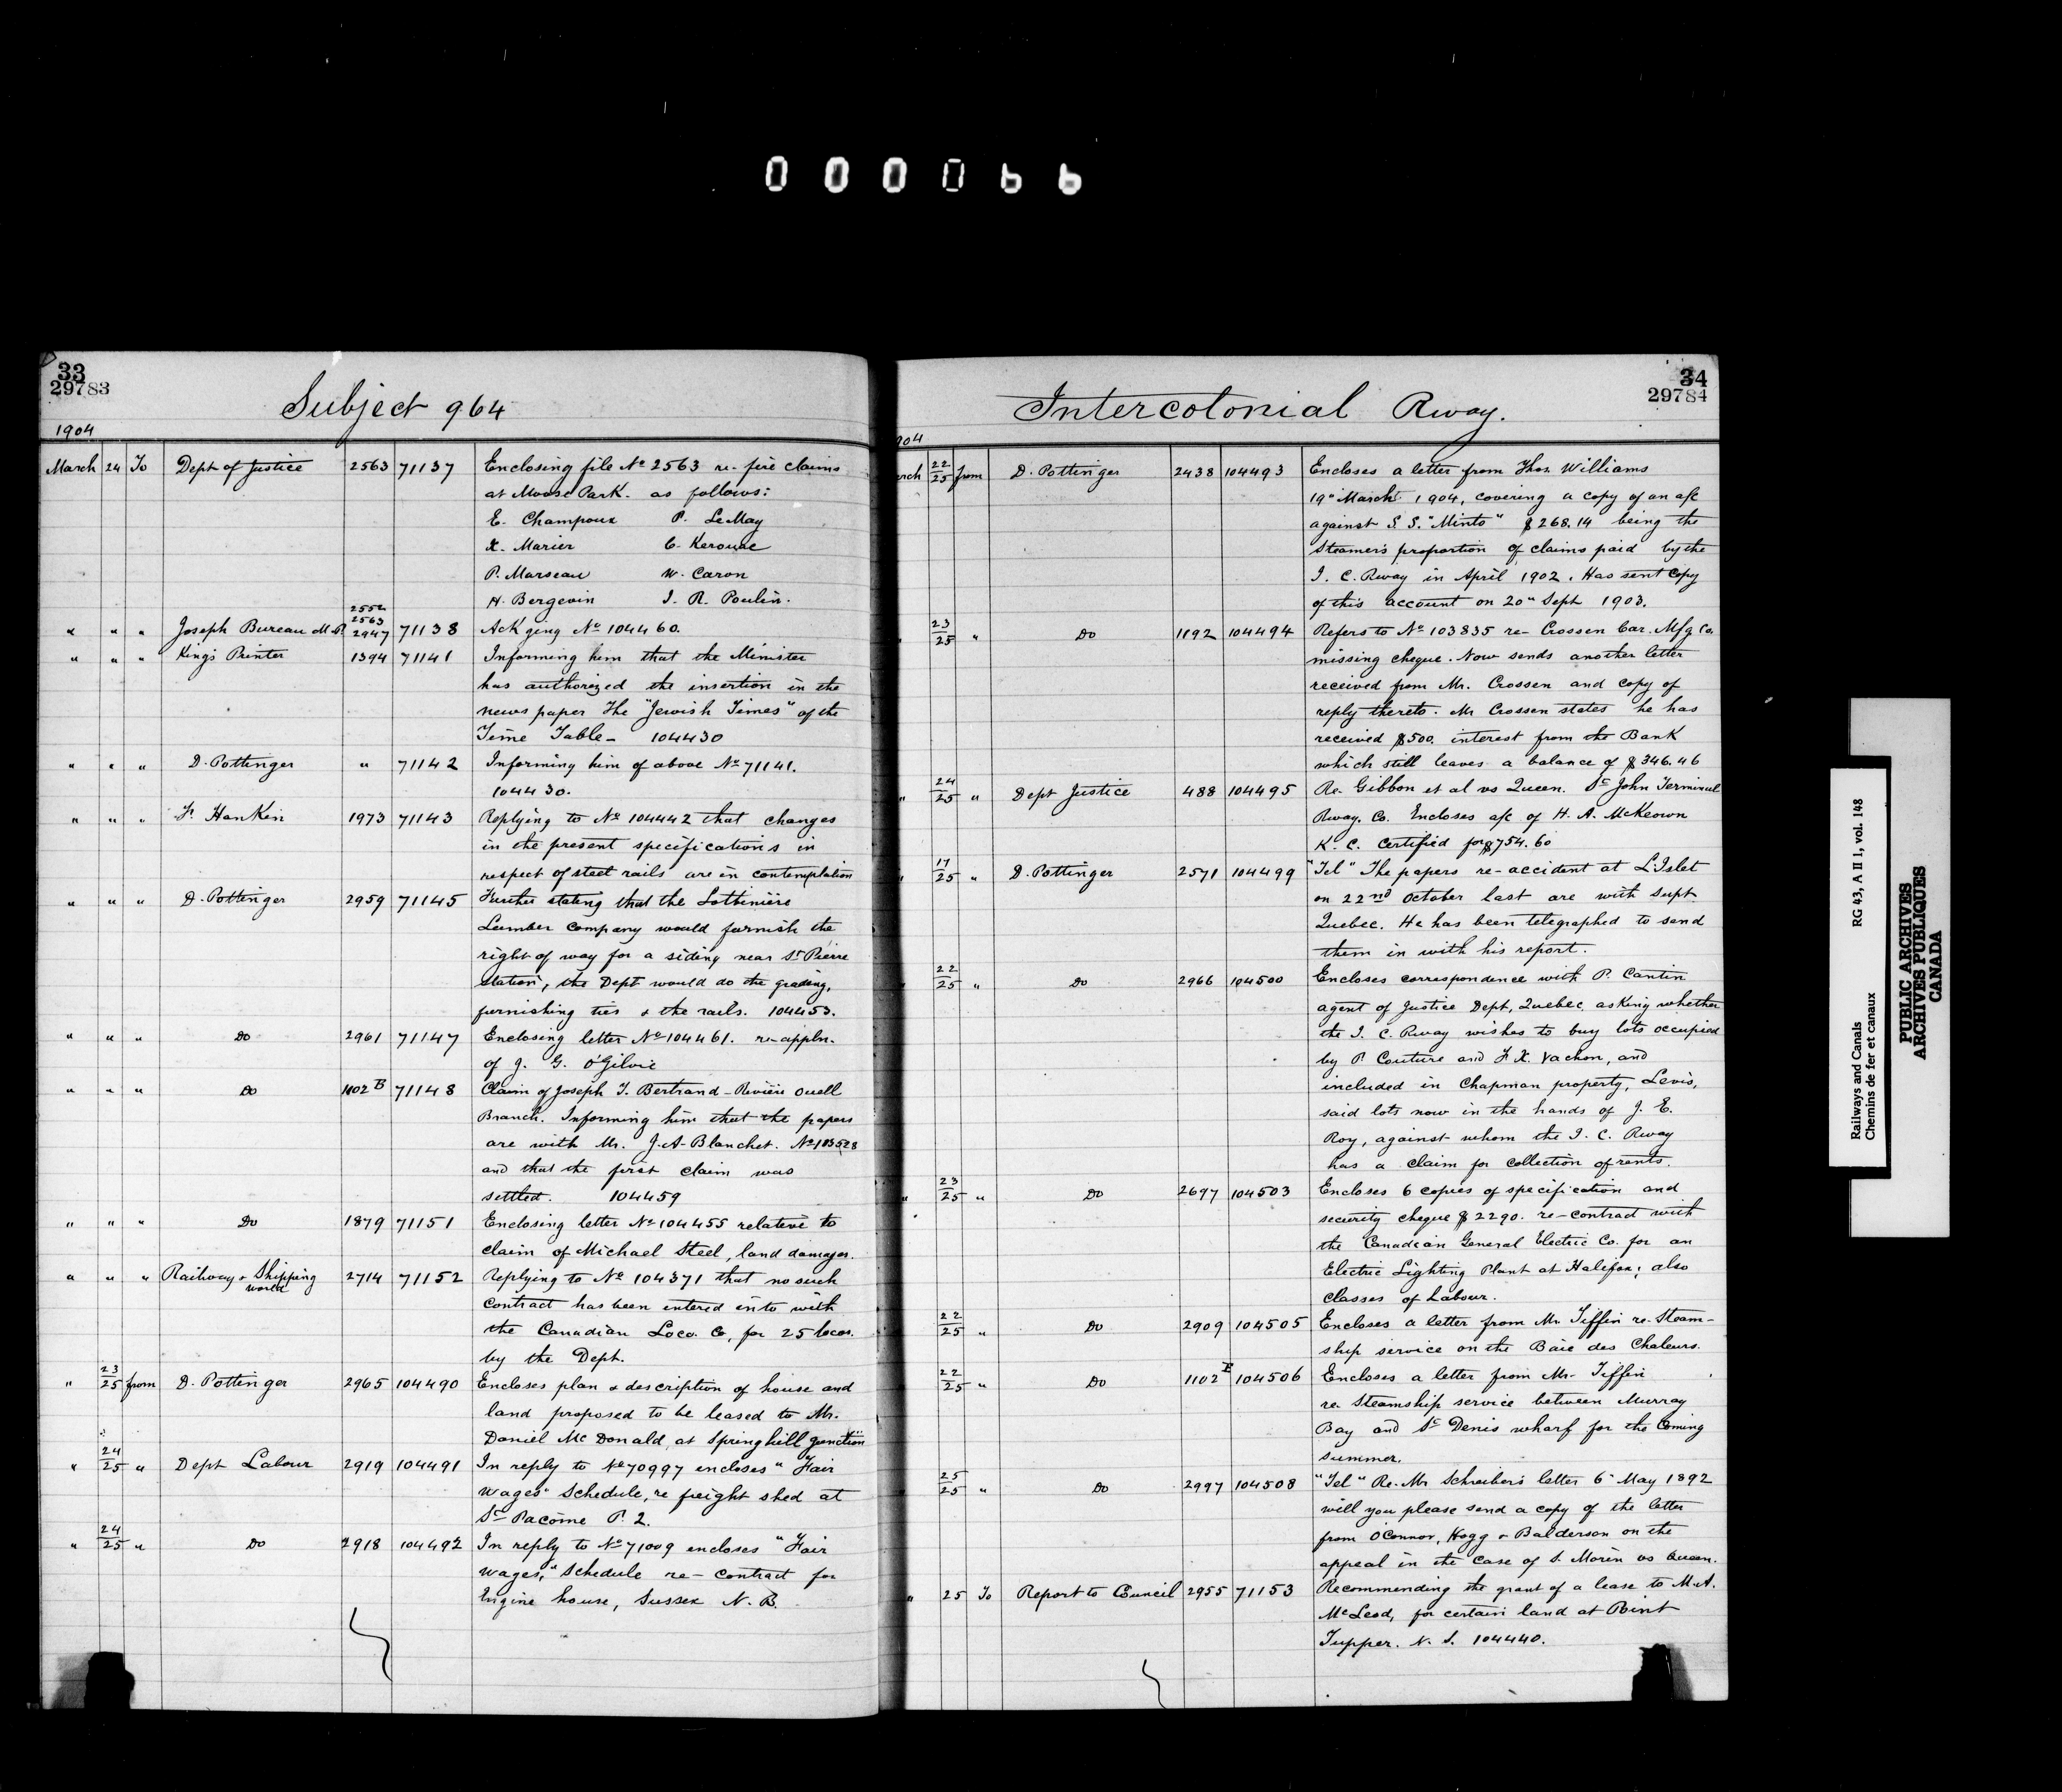 000066
33
29783
Subject 964
1904
March 24 To Dept of Justice 2563 71137 Enclosing file No 2563 re- fire claims
at Moose Park. as follows:
E. Champoux P. LeMay
X. Marier C. Kerouac
P. Marseau W. Caron
H. Bergevin J. R. Poulin.
2552
2563
" " " Joseph Bureau M.P. 2947 71138 Ackging No 104460.
" " " King's Printer 1394 71141 Informing him that the Minister
has authorized the insertion in the
news paper The "Jewish Times" of the
Time Table - 104430
" " " D. Pottinger " 71142 Informing him of above No 71141.
104430.
" " " F. Hankin 1973 71143 Replying to No 104442 that changes
in the present specifications in
respect of steel rails are in contemplation
" " " D. Pottinger 2959 71145 Further stating that the Lotbiniere
Lumber Company would furnish the
right of way for a siding near St Pierre
station, the Dept would do the grading,
furnishing ties & the rails. 104453.
" " " Do 2961 71147 Enclosing letter No 104461. re-appln.
of J. G. O'Gilvie
" " " Do 1102 B 71148 Claim of Joseph T. Bertrand - Rivière Ouell
Branch. Informing him that the papers
are with Mr. J. A. Blanchet. No 103528
and that the first claim was
settled. 104459
" " " Do 1879 71151 Enclosing letter No 104455 relative to
claim of Michael Steel, land damages.
" " " Railway & Shipping World 2714 71152 Replying to No 104371 that no such
contract has been entered into with
the Canadian Loco. Co, for 25 locos.
by the Dept.
" 23/25 from D. Pottinger 2965 104490 Encloses plan & description of house and
land proposed to be leased to Mr.
Daniel McDonald, at Springhill Junction
" 24/25 " Dept Labour 2919 104491 In reply to No 70997 encloses "Fair
Wages" Schedule, re freight shed at
St Pacôme P. Q.
" 24/25 " Do 2918 104492 In reply to No 71009 encloses "Fair
Wages," Schedule re- contract for
Engine house, Sussex N. B.
34
29784
Intercolonial Rway.
904
arch 22/25 from D. Pottinger 2438 104493 Encloses a letter from Thos. Williams
19" March 1904, covering a copy of an a/c
against S. S. "Minto" $268.14 being the
Steamer's proportion of claims paid by the
I. C. Rway in April 1902. Has sent copy
of this account on 20" Sept 1903.
" 23/25 " Do 1192 104494 Refers to No 103835 re- Crossen Car. Mfg Co.
missing cheque. Now sends another letter
received from Mr. Crossen and copy of
reply thereto. Mr Crossen states he has
received $500. interest from the Bank
which still leaves a balance of $346.46
" 24/25 " Dept Justice 488 104495 Re- Gibbon et al vs Queen. St John Terminal
Rway. Co. Encloses a/c of H. A. McKeown
K. C. Certified for $754.60
" 17/25 " D. Pottinger 2571 104499 "Tel" The papers re- accident at L'Islet
on 22nd October last are with Supt
Quebec. He has been telegraphed to send
them in with his report.
" 22/25 " Do 2966 104500 Encloses correspondence with P. Cantin
agent of Justice Dept, Quebec, asking whether
the I. C. Rway wishes to buy lots occupied
by P. Couture and F. X. Vachon, and
included in Chapman property, Levis,
said lots now in the hands of J. E.
Roy, against whom the I. C. Rway
has a claim for collection of rents.
" 23/25 " Do 2697 104503 Encloses 6 copies of specification and
security cheque $2290. re- contract with
the Canadian General Electric Co. for an
Electric Lighting Plant at Halifax; also
Classes of Labour.
22/25 " Do 2909 104505 Encloses a letter from Mr. Tiffin re- Steam-
ship service on the Baie des Chaleurs.
" 22/25 " Do 1102 E 104506 Encloses a letter from Mr- Tiffin
re- Steamship service between Murray
Bay and St Denis wharf for the Coming
summer.
25/25 " Do 2997 104508 "Tel" Re- Mr Schreiber's letter 6" May 1892
will you please send a copy of the letter
from O'Connor, Hogg & Balderson on the
appeal in the case of S. Morin vs Queen.
" 25 To Report to Council 2955 71153 Recommending the grant of a lease to M. A.
McLeod, for certain land at Point
Tupper. N. S. 104440.
Railways and Canals
Chemins de fer et canaux
RG 43, A II 1, vol. 148
PUBLIC ARCHIVES
ARCHIVES PUBLIQUES
CANADA